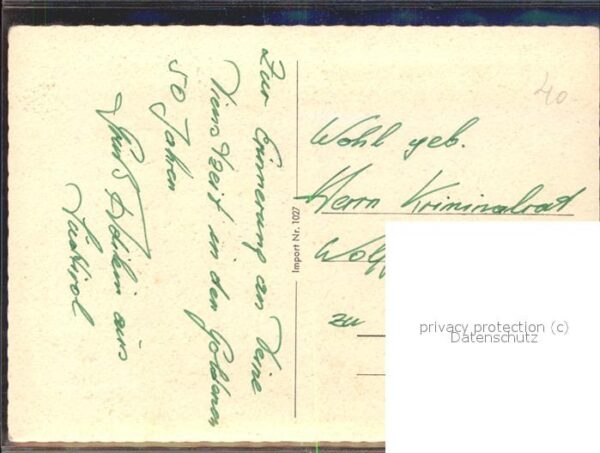 Zur Erinnerung an Deine
Dienstzeit in den Goldenen
50 Jahren
aus
Südtirol
Import Nr. 1027
40
Wohl geb.
Herrn Kriminalrat
zu
privacy protection (c)
Datenschutz